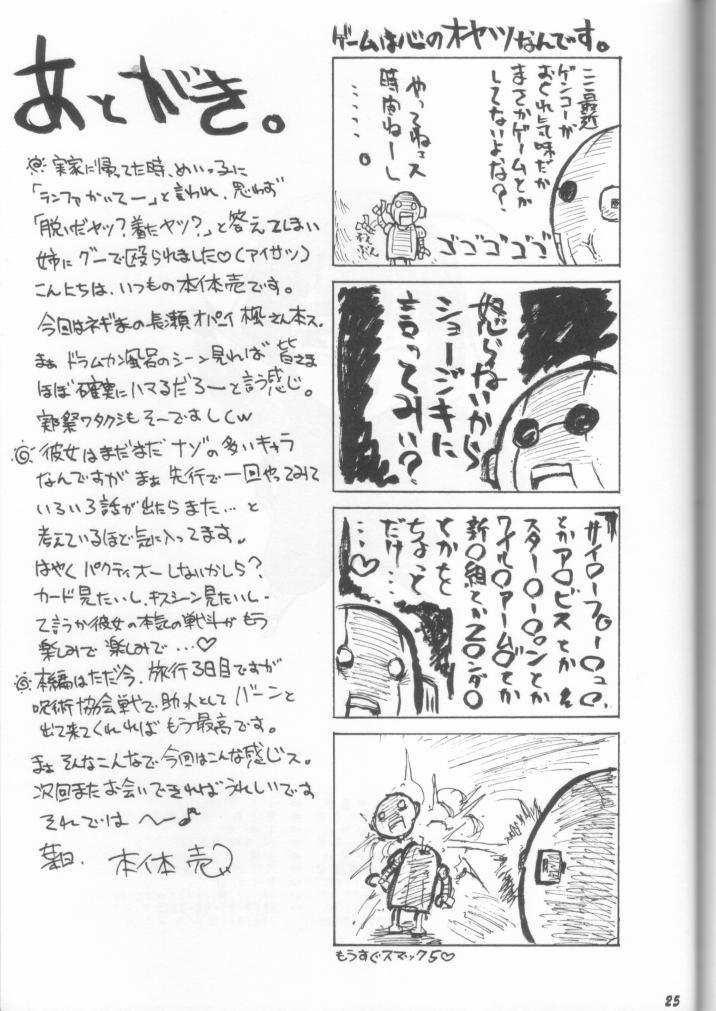 あとがき。
実家に帰ってた時、めいっ子に
「ランファかいてー」と言われ、思わず
「脱いだヤツ?着たヤツ?」と答えてしまい
姉にグーで殴られました♡(アイサツ)
こんにちは、いつもの本体売です。
今回はネギまの長瀬オパイ楓さん本ス。
まぁドラムカン風呂のシーン見れば皆さま
ほぼ確実にハマるだろーと言う感じ。
実際ワタクシもそーですしw
彼女はまだまだナゾの多いキャラ
なんですがまぁ先行で一回やってみて
いろいろ話が出たらまた…と
考えているほど気に入ってます。
はやくパクティオーしないかしら?
カード見たいし、キスシーン見たいし・
て言うか彼女の本気の戦斗がもう
楽しみで楽しみで…♡
本編はただ今、旅行3日目ですが
呪術協会戦で助っ人としてバーンと
出て来てくれればもう最高です。
まぁそんなこんなで今回はこんな感じス。
次回またお会いできればうれしいです
それでは〜♪
本体売
ゲームは心のオヤツなんです。
ここ最近
ゲンコーが
おくれ気味だが
まさかゲームとか
してないよな?
やってねェス
時間ねーし
……。
ゴゴゴゴゴ
怒らないから
ショージキに
言ってみい?
サイ○ーフ○ー○ュ○、
とかア○ビスとか
スター○ー○ンとか
ワイル○アーム○とか
新○組とかZ○ンダ○
とかをと
ちょっと
だけ…
…♡
もうすぐスマック5♡
25